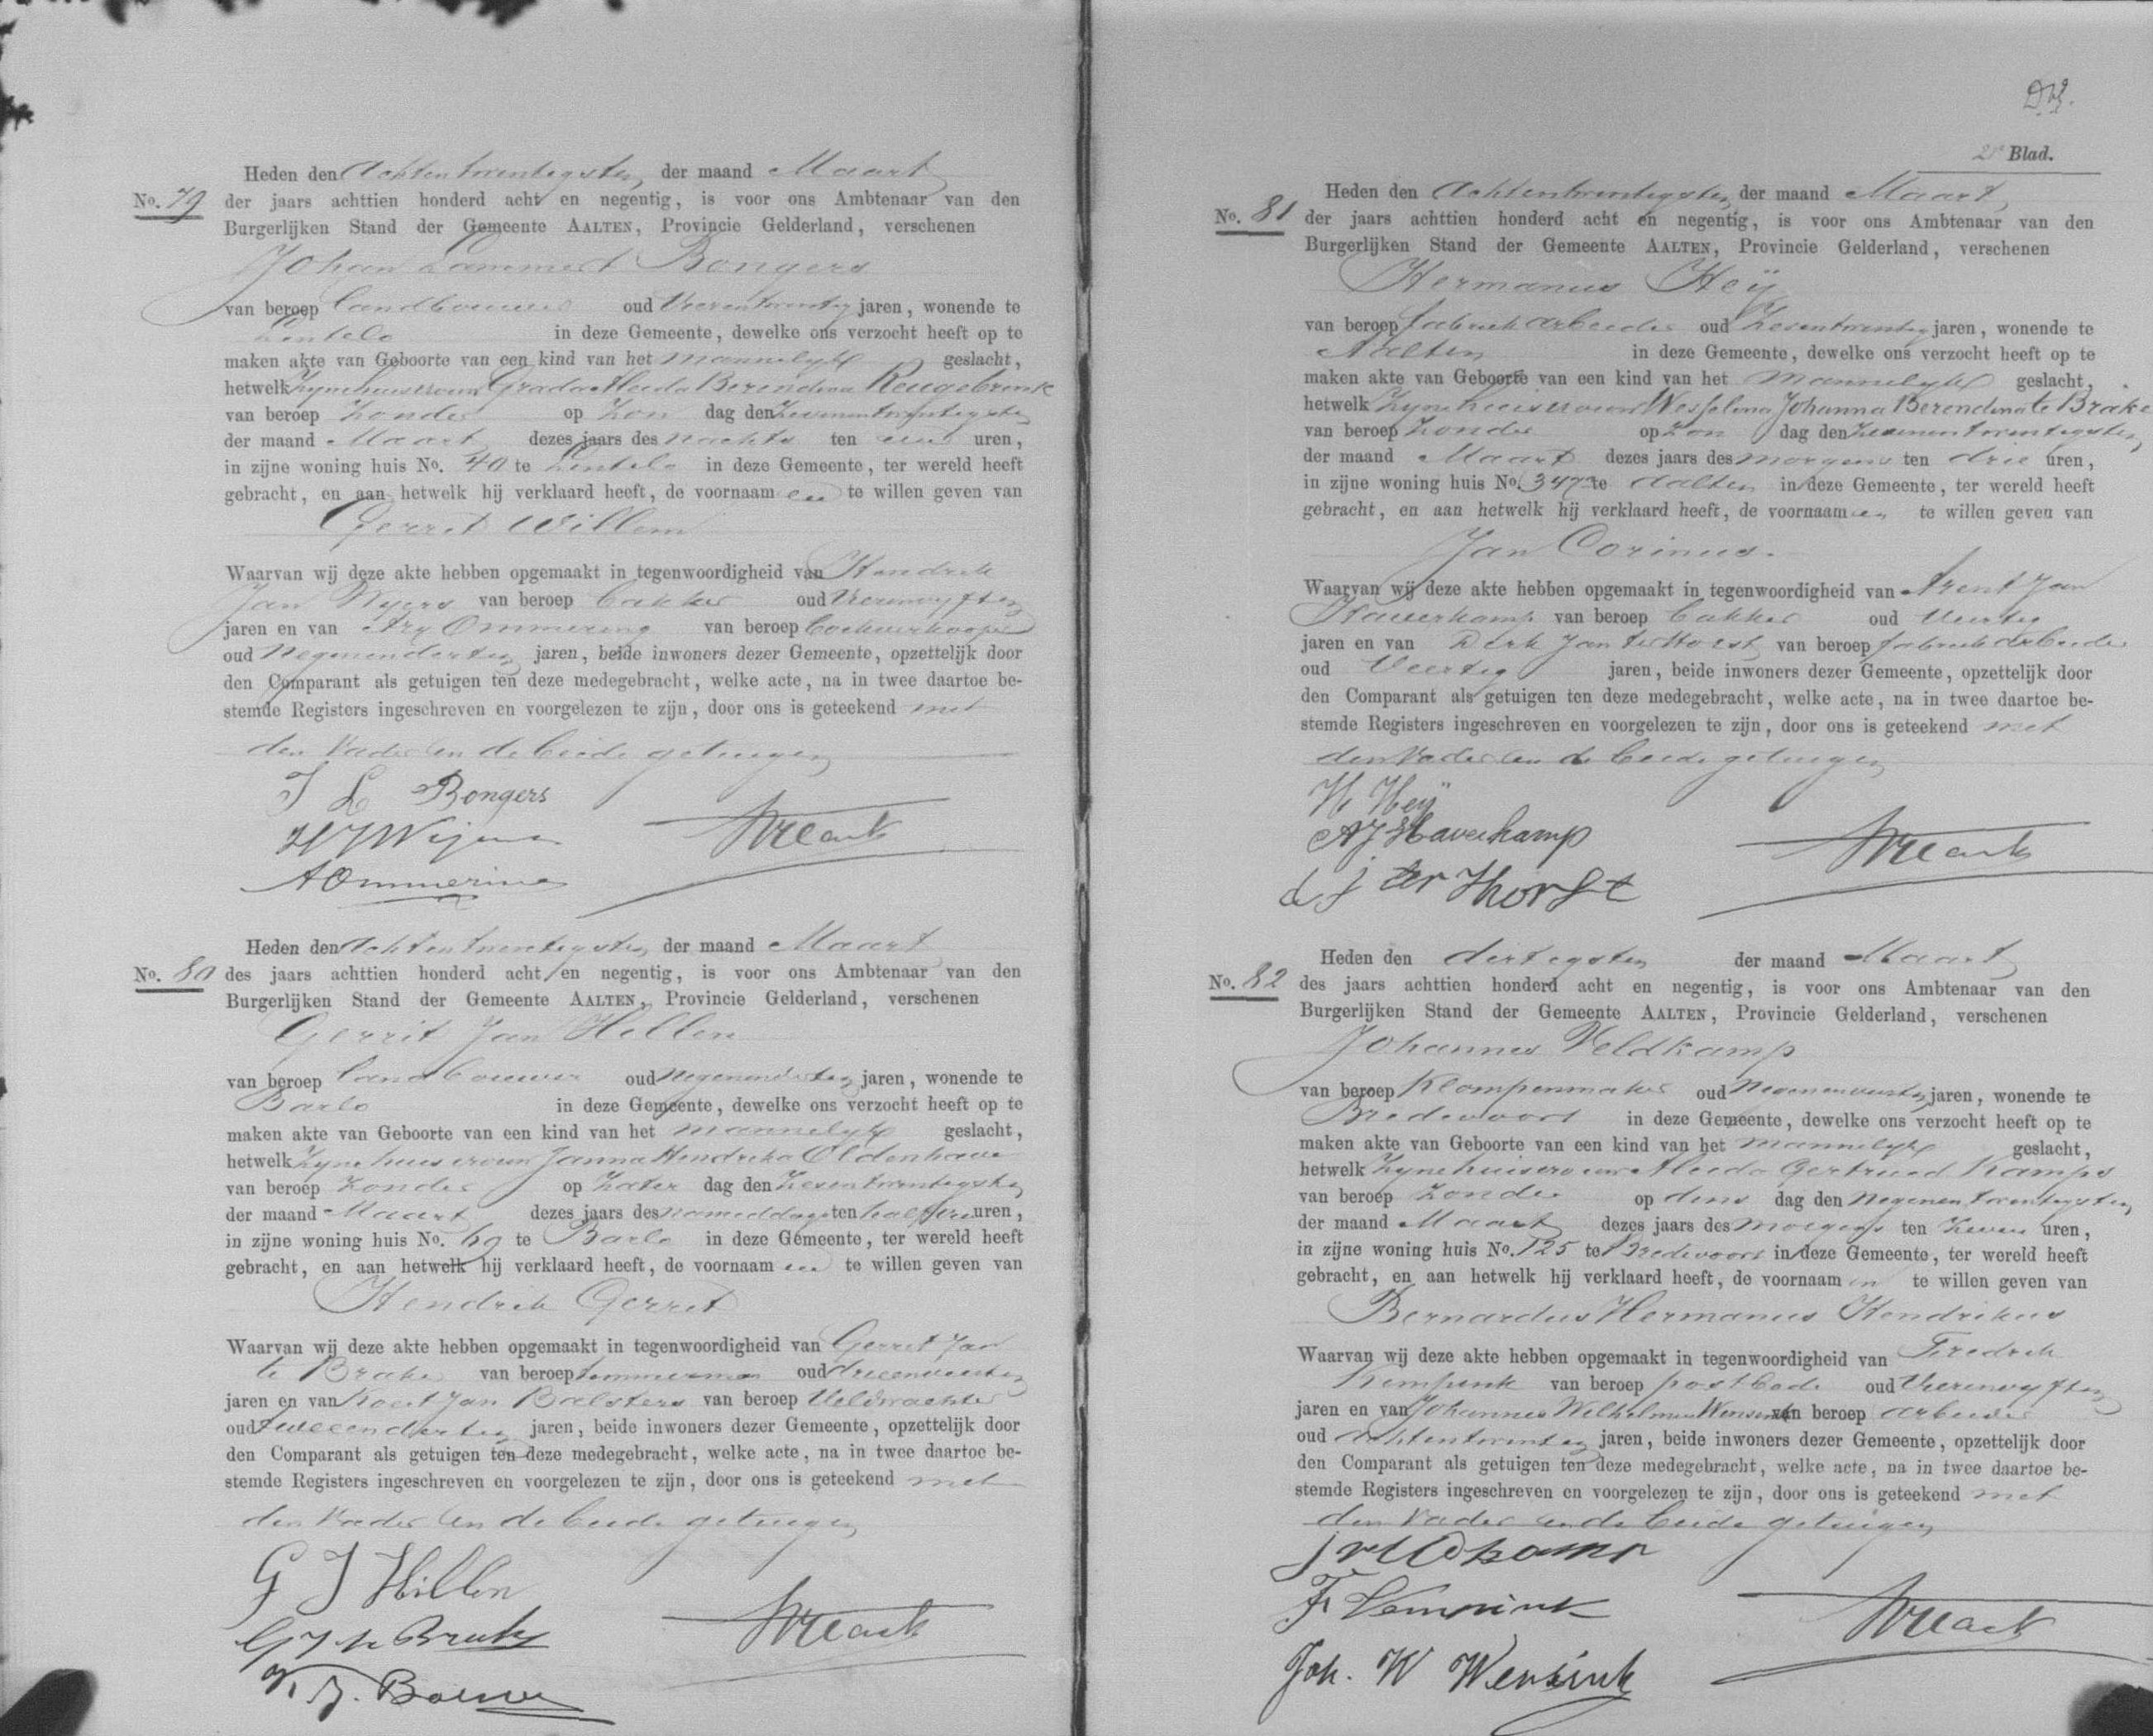 Heden den Achtentwintigsten der maand Maart
No. 79 der jaars achttien honderd acht en negentig, is voor ons Ambtenaar van den
Burgerlijken Stand der Gemeente AALTEN, Provincie Gelderland, verschenen
Johan Lammert Bongers
van beroep landbouwer oud Vierentwintig jaren, wonende te
Lintelo in deze Gemeente, dewelke ons verzocht heeft op te
maken akte van Geboorte van een kind van het mannelijk geslacht,
hetwelk zijne huisvrouw Grada Aleida Berendina Reugebrink
van beroep zonder op Zon dag den zevenentwintigsten
der maand Maart dezes jaars des nachts ten een uren,
in zijne woning huis No. 40 te Lintelo in deze Gemeente, ter wereld heeft
gebracht, en aan hetwelk hij verklaard heeft, de voornaam en te willen geven van
Gerrit Willem
Waarvan wij deze akte hebben opgemaakt in tegenwoordigheid van Hendrik
Jan Wijers van beroep bakker oud Vierenvijftig
jaren en van Ary Ommering van beroep boekverkooper
oud Negenendertig jaren, beide inwoners dezer Gemeente, opzettelijk door
den Comparant als getuigen ten deze medegebracht, welke acte, na in twee daartoe be-
stemde Registers ingeschreven en voorgelezen te zijn, door ons is geteekend met
den Vader en de beide getuigen
J L Bongers
HJ Wijers
A Ommering
Heden den Achtentwintigsten der maand Maart
No. 80 des jaars achttien honderd acht en negentig, is voor ons Ambtenaar van den
Burgerlijken Stand der Gemeente AALTEN, Provincie Gelderland, verschenen
Gerrit Jan Hillen
van beroep landbouwer oud Negenendertig jaren, wonende te
Barlo in deze Gemeente, dewelke ons verzocht heeft op te
maken akte van Geboorte van een kind van het mannelijk geslacht,
hetwelk zijne huisvrouw Janna Hendrika Oldenhave
van beroep zonder op Zater dag den zesentwintigsten
der maand Maart dezes jaars des namiddags ten half uren,
in zijne woning huis No. 69 te Barlo in deze Gemeente, ter wereld heeft
gebracht, en aan hetwelk hij verklaard heeft, de voornaam en te willen geven van
Hendrik Gerrit
Waarvan wij deze akte hebben opgemaakt in tegenwoordigheid van Gerrit Jan
te Brake van beroep timmerman oud drieenveertig
jaren en van Jan van beroep Veldwachter
oud tweeendertig jaren, beide inwoners dezer Gemeente, opzettelijk door
den Comparant als getuigen ten deze medegebracht, welke acte, na in twee daartoe be-
stemde Registers ingeschreven en voorgelezen te zijn, door ons is geteekend met
den Vader en de beide getuigen
G J Hillen
GJ te Brake
2e Blad.
Heden den Achtentwintigsten der maand Maart
No. 81 der jaars achttien honderd acht en negentig, is voor ons Ambtenaar van den
Burgerlijken Stand der Gemeente AALTEN, Provincie Gelderland, verschenen
Hermanus Heij
van beroep fabriekarbeider oud Zesentwintig jaren, wonende te
Aalten in deze Gemeente, dewelke ons verzocht heeft op te
maken akte van Geboorte van een kind van het mannelijk geslacht,
hetwelk zijne huisvrouw Wesselina Johanna Berendina te Brake
van beroep zonder op Zon dag den zevenentwintigsten
der maand Maart dezes jaars des morgens ten drie uren,
in zijne woning huis No. 347 te Aalten in deze Gemeente, ter wereld heeft
gebracht, en aan hetwelk hij verklaard heeft, de voornaam en te willen geven van
Jan Corinus.
Waarvan wij deze akte hebben opgemaakt in tegenwoordigheid van Arent Jan
Haverkamp van beroep bakker oud Veertig
jaren en van Derk Jan ter Horst van beroep fabriekarbeider
oud Veertig jaren, beide inwoners dezer Gemeente, opzettelijk door
den Comparant als getuigen ten deze medegebracht, welke acte, na in twee daartoe be-
stemde Registers ingeschreven en voorgelezen te zijn, door ons is geteekend met
den Vader en de beide getuigen
H Heij
AJ Haverkamp
d j ter Horst
Heden den dertigsten der maand Maart
No. 82 des jaars achttien honderd acht en negentig, is voor ons Ambtenaar van den
Burgerlijken Stand der Gemeente AALTEN, Provincie Gelderland, verschenen
Johannes Veldkamp
van beroep Klompenmaker oud Negenenveertig jaren, wonende te
Bredevoort in deze Gemeente, dewelke ons verzocht heeft op te
maken akte van Geboorte van een kind van het mannelijk geslacht,
hetwelk zijne huisvrouw Aleida Gertrud Kamps
van beroep zonder op dins dag den Negenentwintigsten
der maand Maart dezes jaars des morgens ten zeven uren,
in zijne woning huis No. 125 te Bredevoort in deze Gemeente, ter wereld heeft
gebracht, en aan hetwelk hij verklaard heeft, de voornaam en te willen geven van
Bernardus Hermanus Hendrikus
Waarvan wij deze akte hebben opgemaakt in tegenwoordigheid van Fredrik
van beroep postbode oud Vierenvijftig
jaren en van Johannes Wilhelmus Wensink van beroep arbeider
oud achtentwintig jaren, beide inwoners dezer Gemeente, opzettelijk door
den Comparant als getuigen ten deze medegebracht, welke acte, na in twee daartoe be-
stemde Registers ingeschreven en voorgelezen te zijn, door ons is geteekend met
den Vader en de beide getuigen
J Veldkamp
Joh. W Wensink